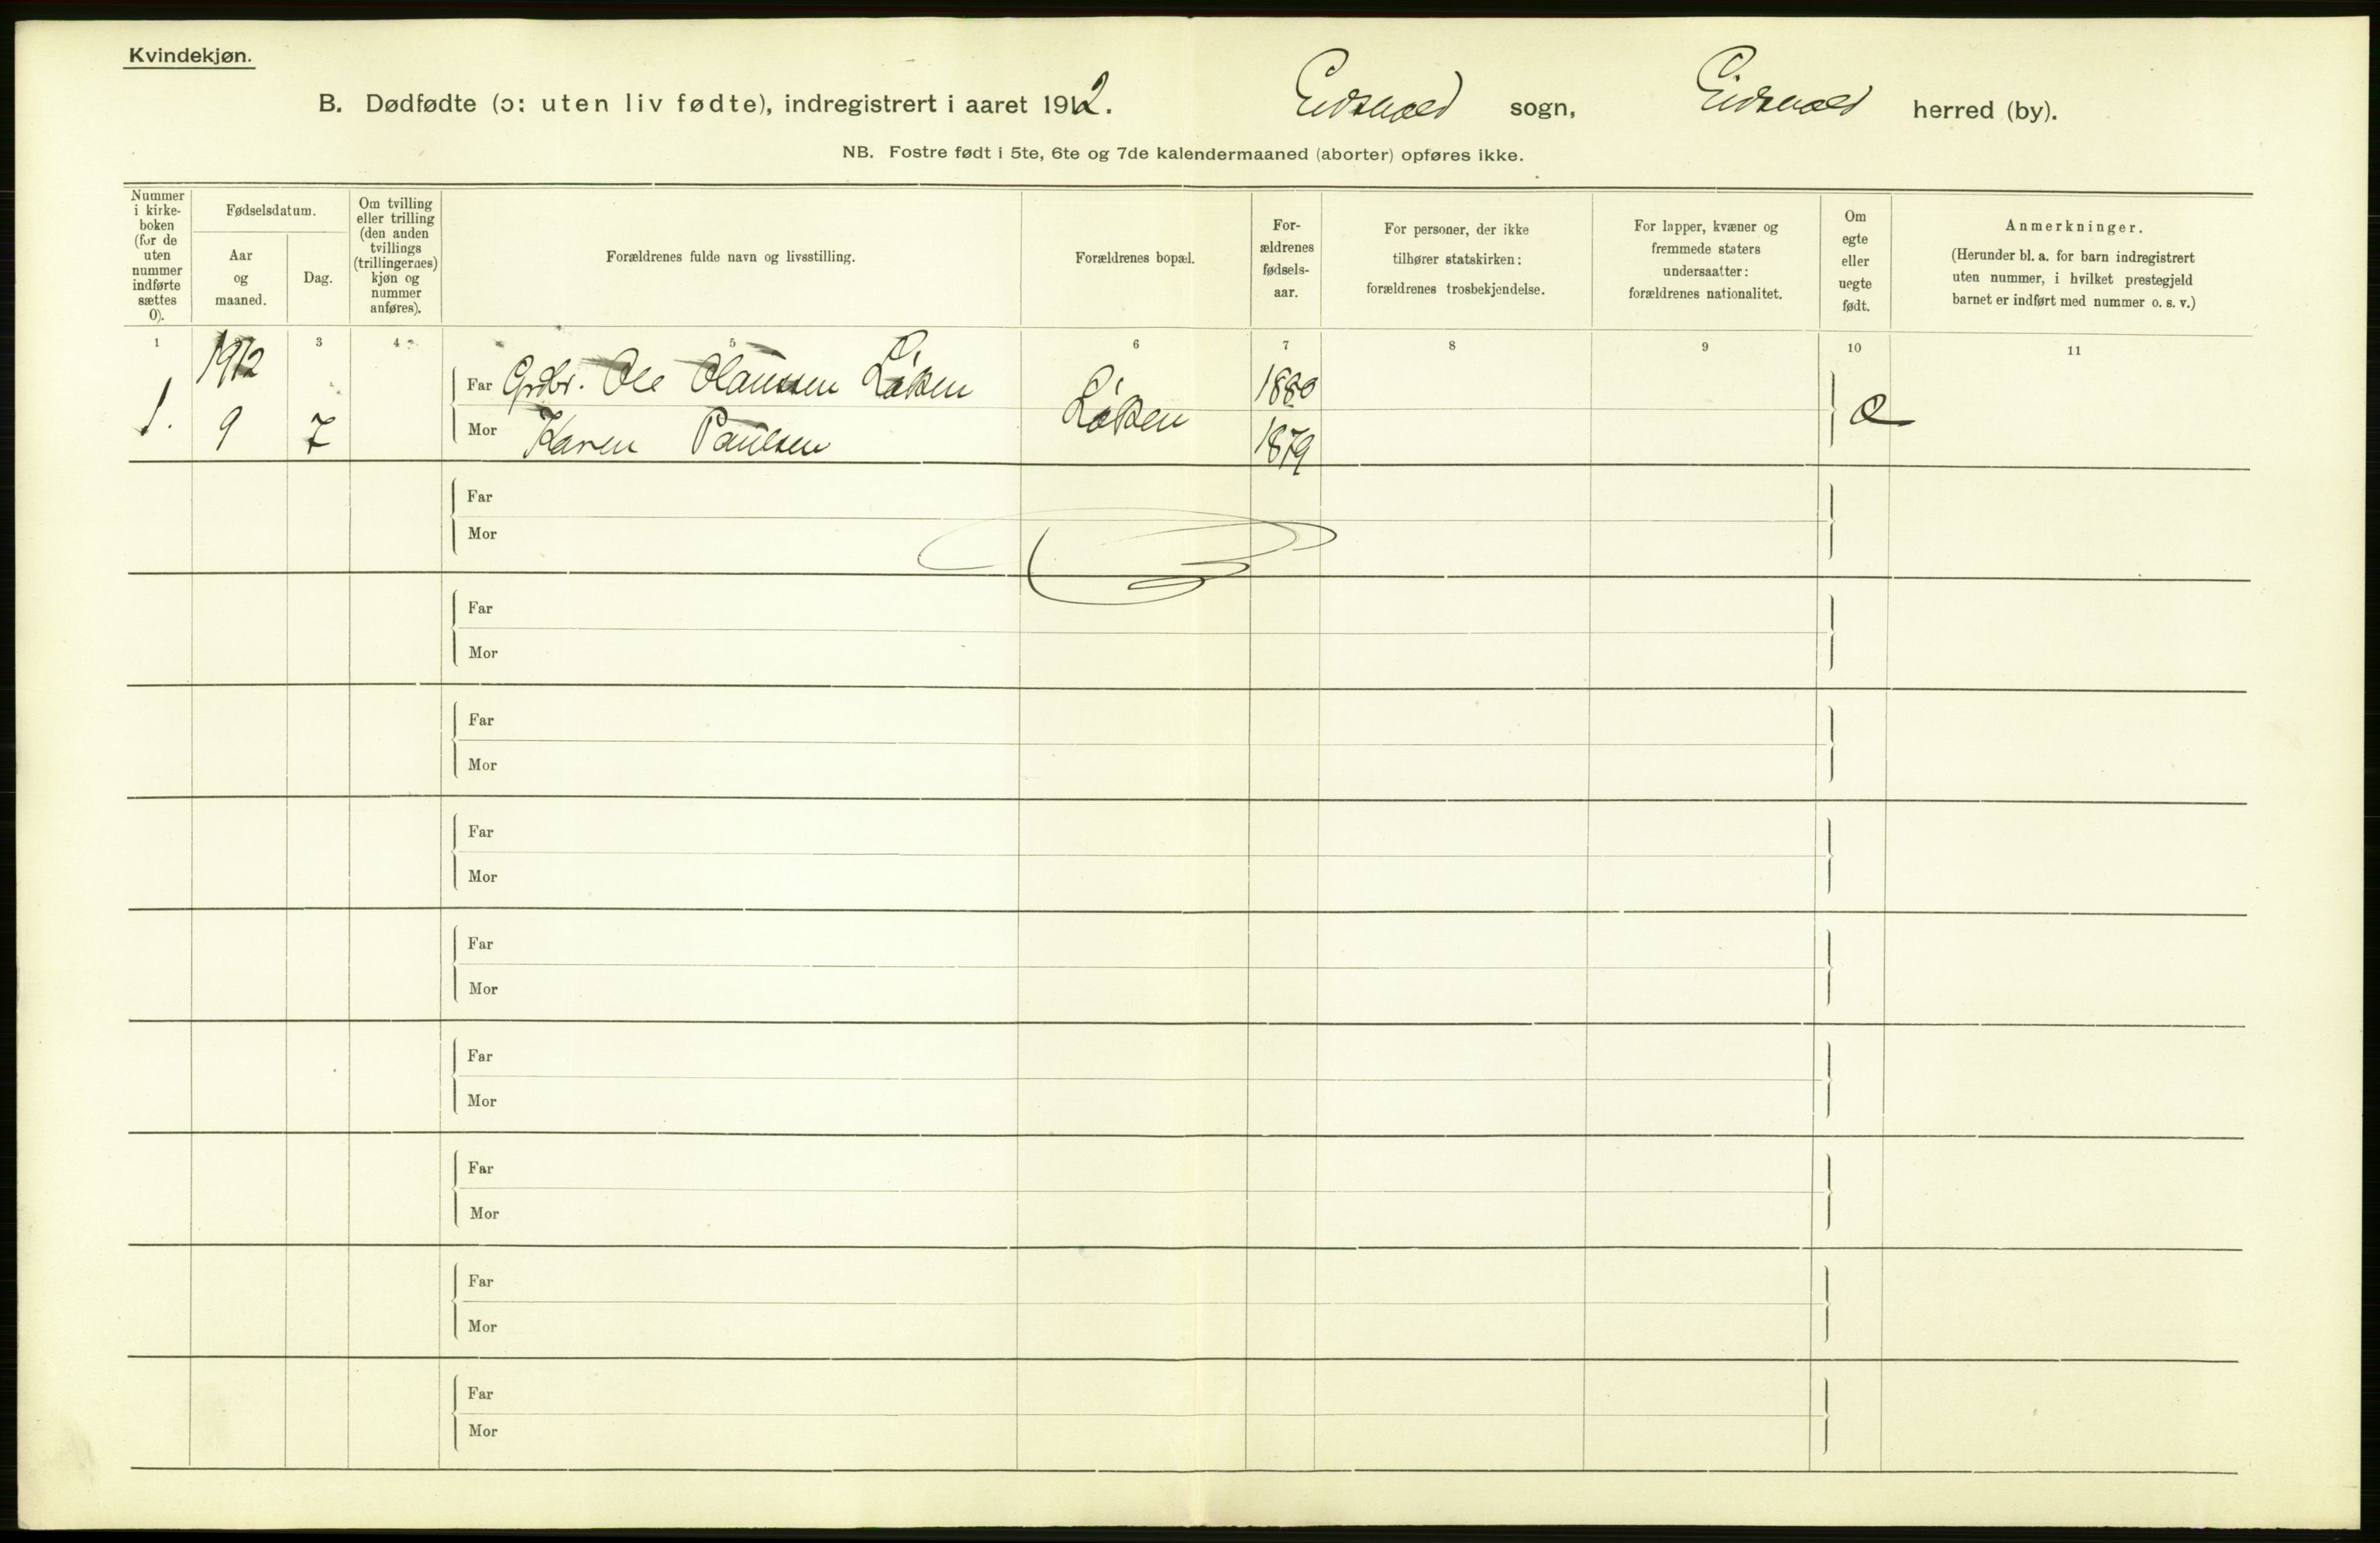 Kvindekjøn.
B. Dødfødte (ɔ: uten liv fødte), indregistrert i aaret 1912. Eidsvold sogn, Eidsvold herred (by).
NB. Fostre født i 5te, 6te og 7de kalendermaaned (aborter) opføres ikke.
Nummer
i kirke-
boken
(for de
uten
nummer
indførte
sættes
0).
Fødselsdatum.
Aar
og
maaned.
Dag.
Om tvilling
eller trilling
(den anden
tvillings
(trillingernes)
kjøn og
nummer
anføres).
Forældrenes fulde navn og livsstilling.
Forældrenes bopæl.
For-
ældrenes
fødsels-
aar.
For personer, der ikke
tilhører statskirken:
forældrenes trosbekjendelse.
For lapper, kvæner og
fremmede staters
undersaatter:
forældrenes nationalitet.
Om
egte
eller
uegte
født.
Anmerkninger.
(Herunder bl. a. for barn indregistrert
uten nummer, i hvilket prestegjeld
barnet er indført med nummer o. s. v.)
1 3 4 5 6 7 8 9 10 11
1912
Far Grdbr. Ole Olaussen Løken 1880
1. 9 7 Løken
Mor Karen Paulsen 1879
Far
Mor
Far
Mor
Far
Mor
Far
Mor
Far
Mor
Far
Mor
Far
Mor
Far
Mor
Far
Mor